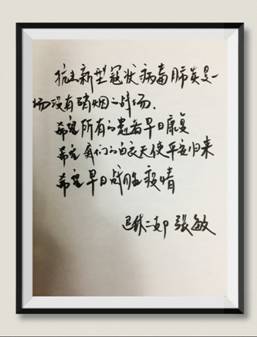 抗击新型冠状病毒肺炎是一
场没有硝烟的战场.
希望所有的患者早日康复
希望我们的白衣天使平安归来
希望早日战胜疫情
退休二 张敏